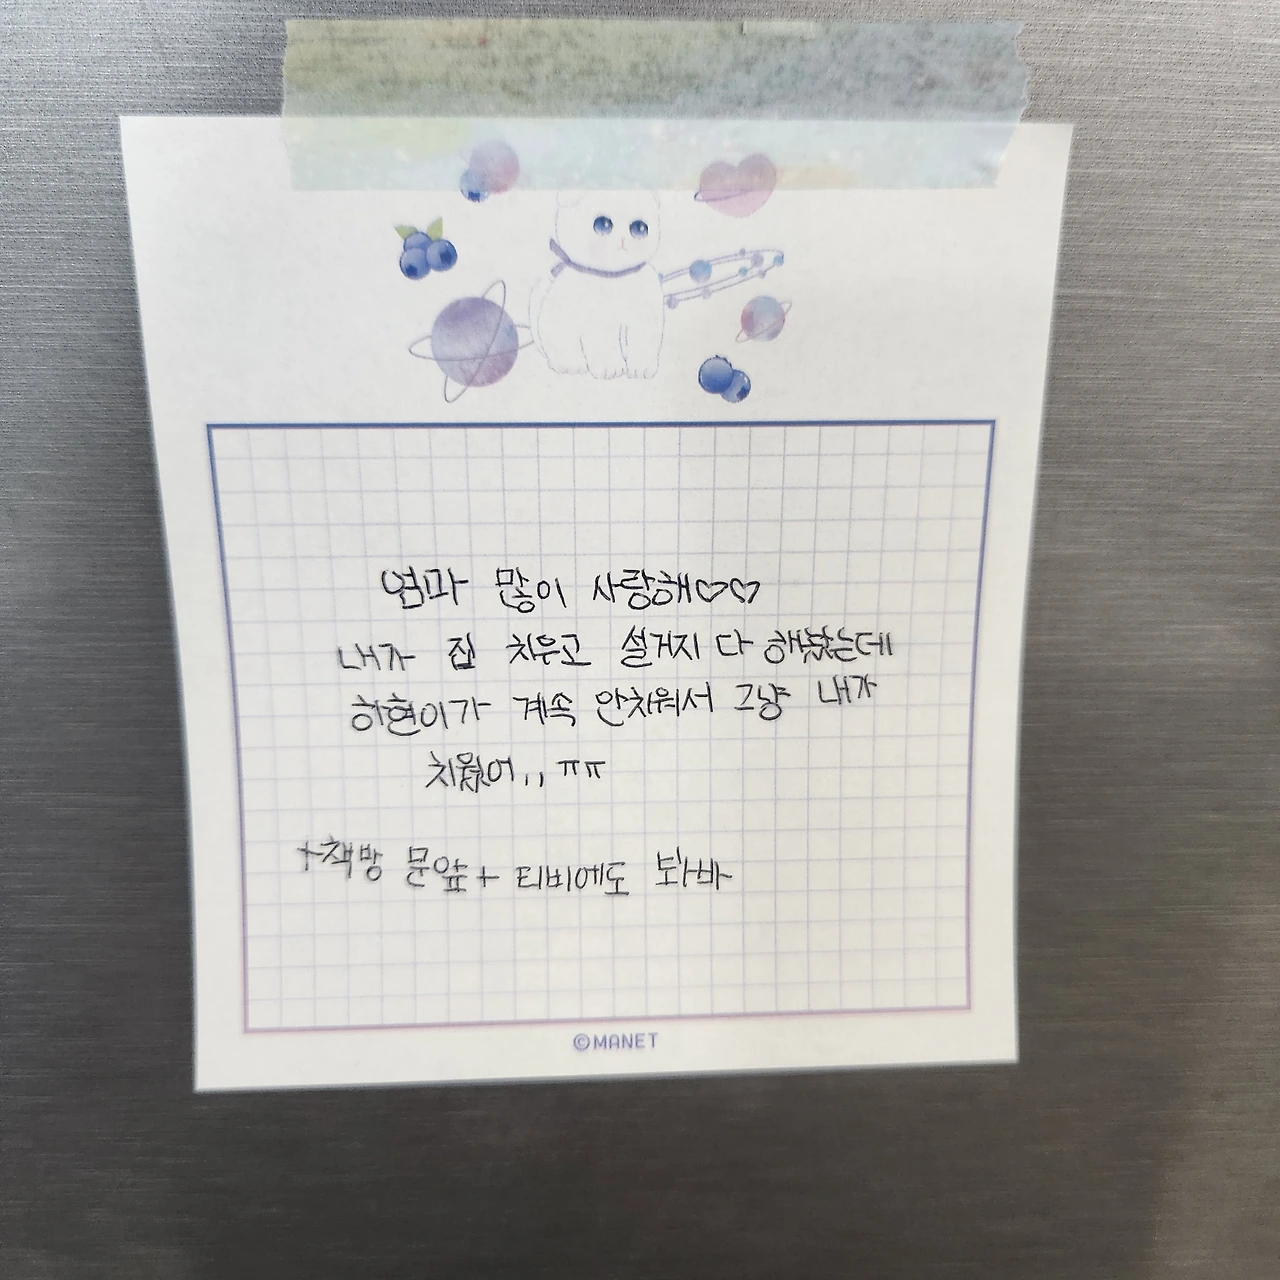 엄마 많이 사랑해♡♡
내가 집 치우고 설거지 다 해놨는데
하현이가 계속 안치워서 그냥 내가
치웠어,, ㅠㅠ
+책방 문앞 + 티비에도 봐바
©MANET